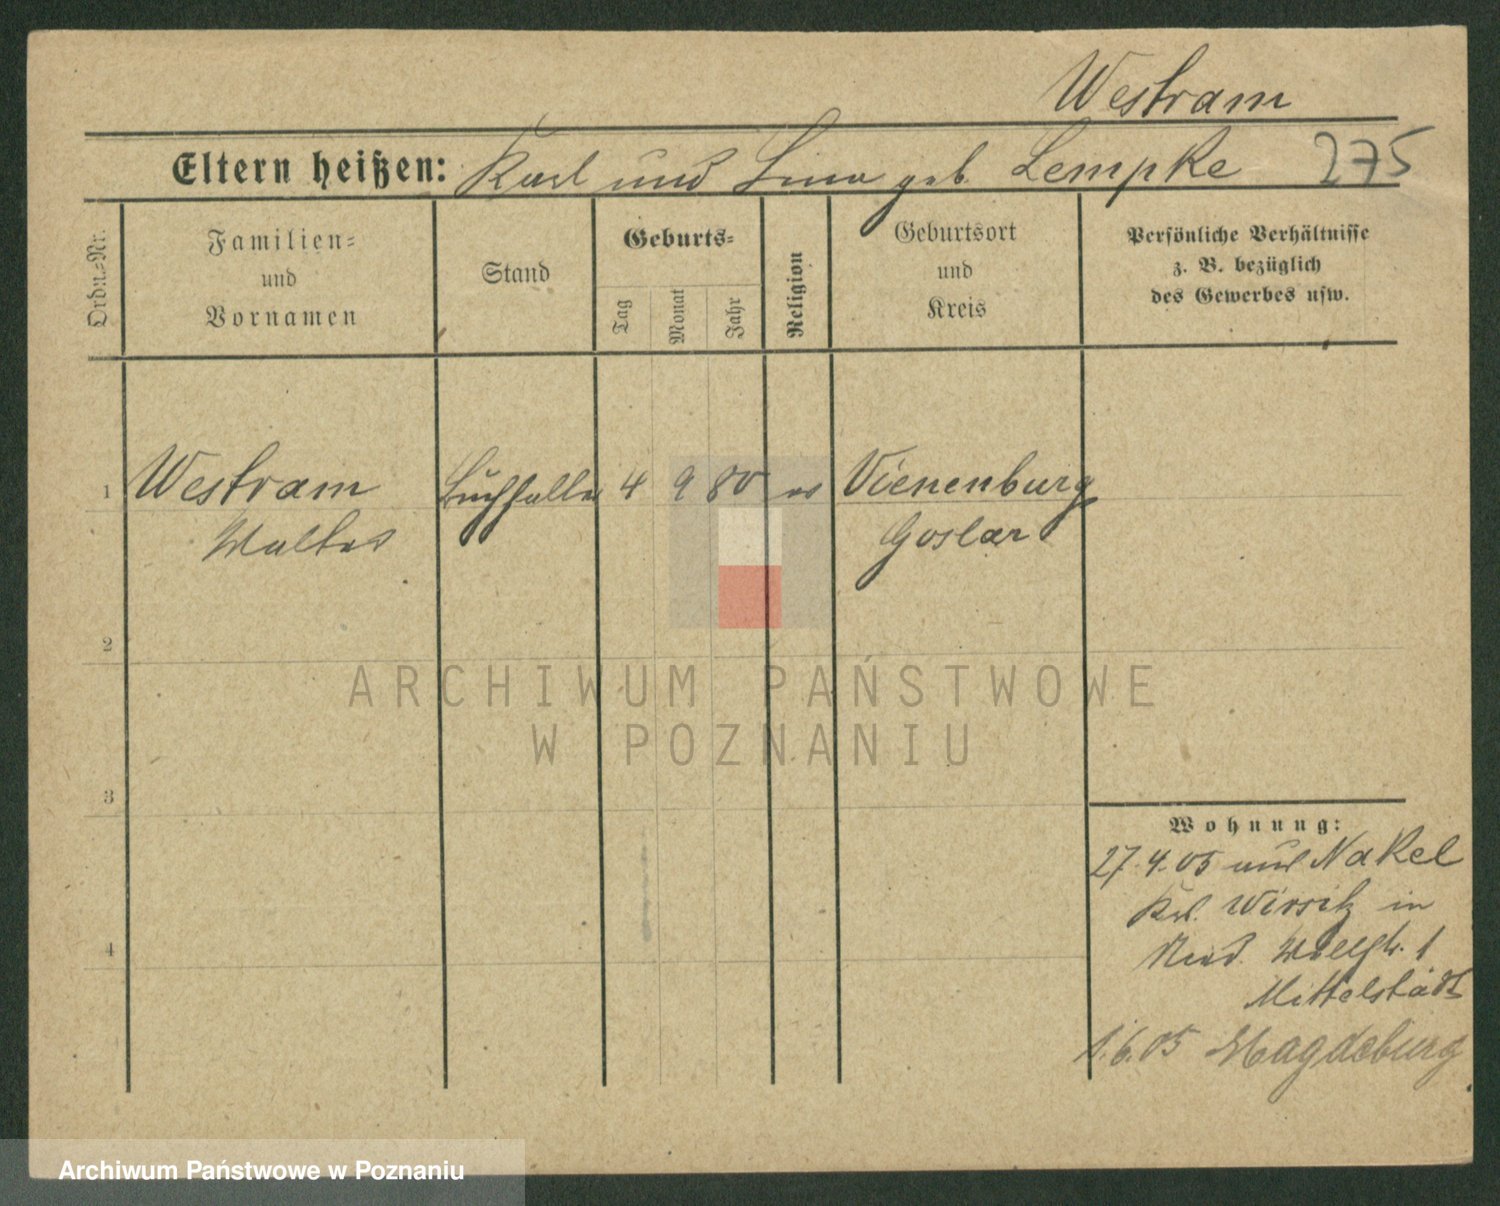 Westram
Eltern heißen: Karl und Lina geb. Lempke 275
Ordn.=Nr.
Familien=
und
Vornamen
Stand
Geburts=
Tag
Monat
Jahr
Religion
Geburtsort
und
Kreis
Persönliche Verhältnisse
z. B. bezüglich
des Gewerbes usw.
1 Westram Buchhalter 4 9 80 ev Vienenburg
Walter Goslar
2
3
4
Wohnung:
27.4.05 aus Nakel
Kr. Wirsitz in
1
Mittelstädt
1.6.05 Magdeburg
ARCHIWUM PAŃSTWOWE
W POZNANIU
Archiwum Państwowe w Poznaniu